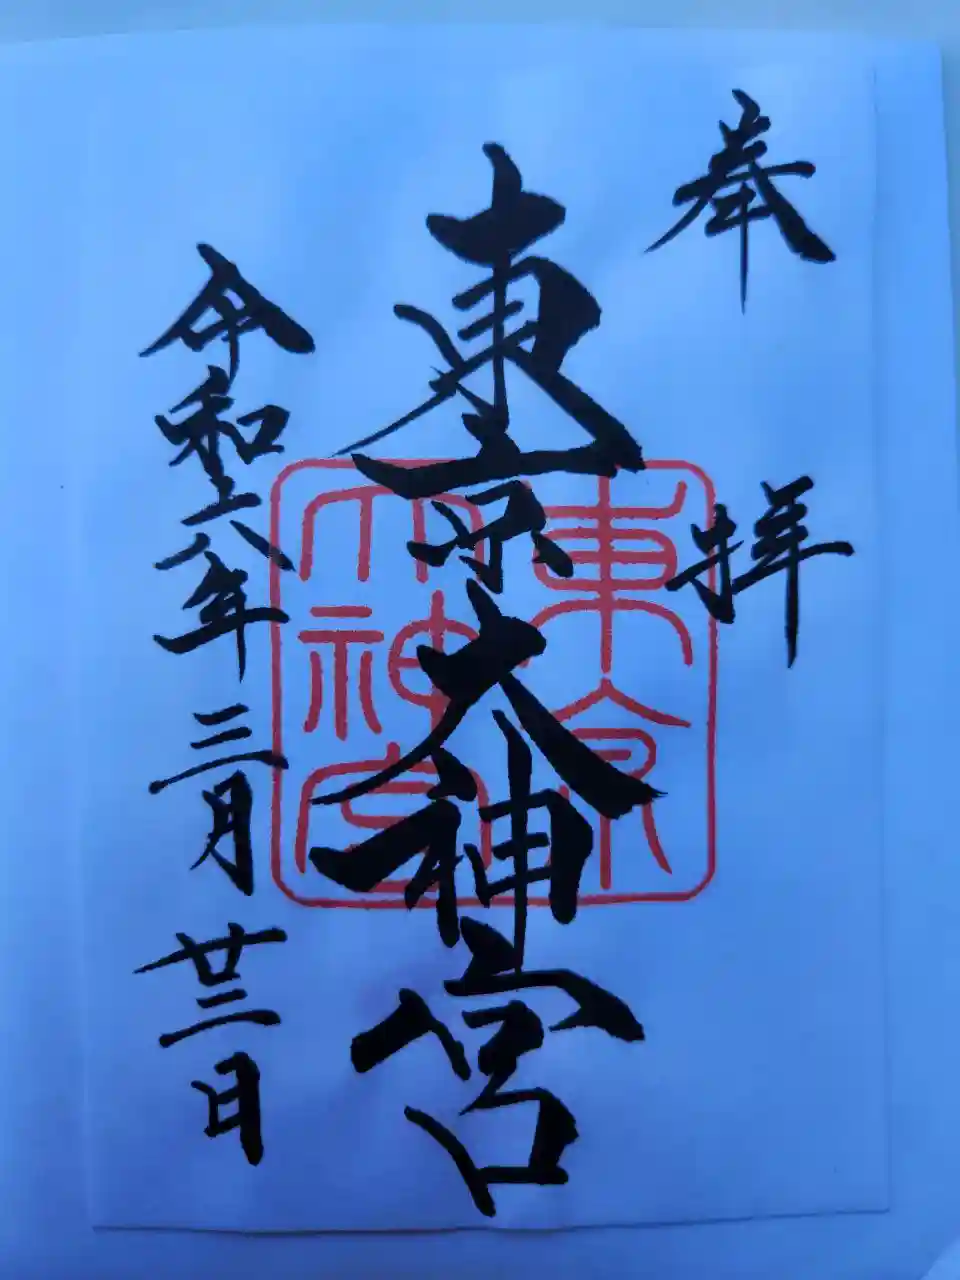 奉拝
東京大神宮
東京大神宮
令和六年三月廿二日